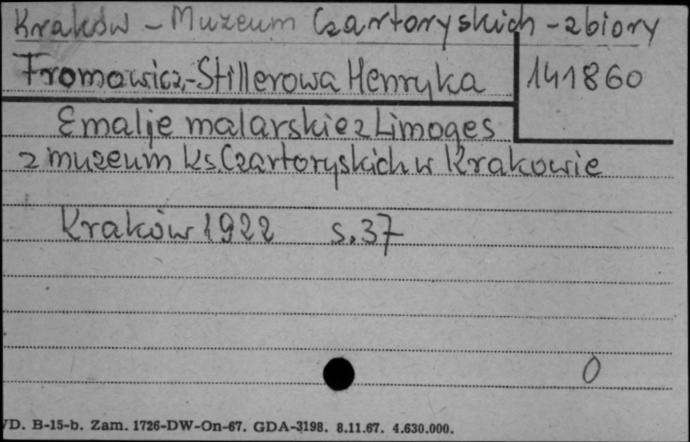 Kraków - Muzeum Czartoryskich - zbiory
Fromowicz-Stillerowa Henryka 141860
Emalje malarskie z Limoges
z muzeum ks. Czartoryskich w Krakowie
Kraków 1922 s. 37
0
VD. B-15-b. Zam. 1726-DW-On-67. GDA-3198. 8.11.67. 4.630.000.